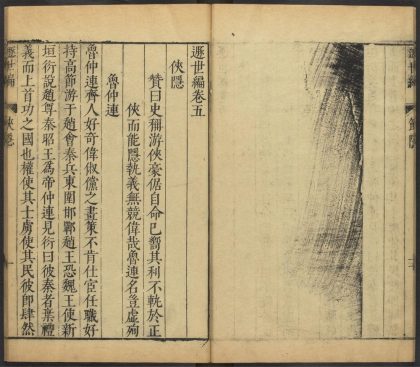 遯世編卷五
俠隱
贊曰史稱游俠豪倨自命己嚮其利不軌於正
俠而能隱執義無競偉哉魯連名豈虛殉
魯仲連
魯仲連齊人好奇偉俶儻之畫策不肯仕宦任職好
持高節游于趙會秦兵東圍邯鄲趙王恐魏王使新
垣衍說趙尊秦昭王爲帝仲連見衍曰彼秦者棄禮
義而上首功之國也權使其士虜使其民彼即肆然
遯世編 俠隱 一